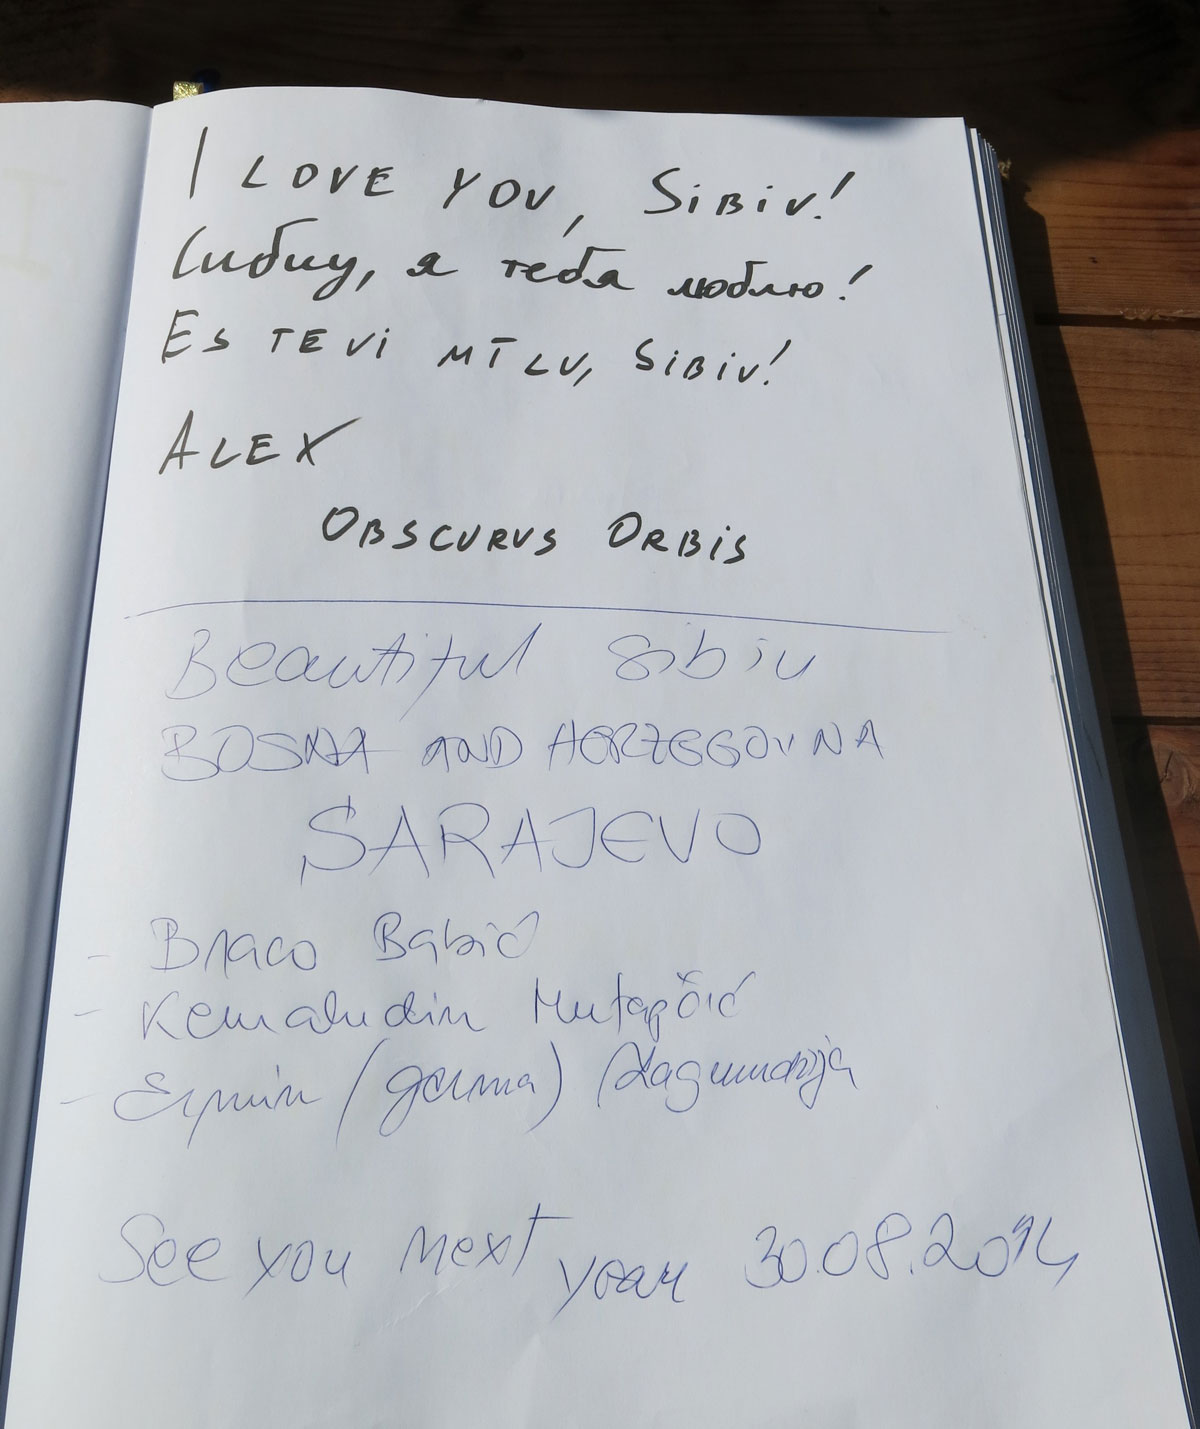 I LOVE YOU, SIBIU!
Сибиу, я тебя люблю!
ES TEVI MĪLU, SIBIU!
ALEX
OBSCURUS ORBIS
Beautiful Sibiu
BOSNA AND HERZEGOVNA
SARAJEVO
- Braco Babić
- Kemaludin Mutapčić
- Ermin
See you next year 30.08.2014